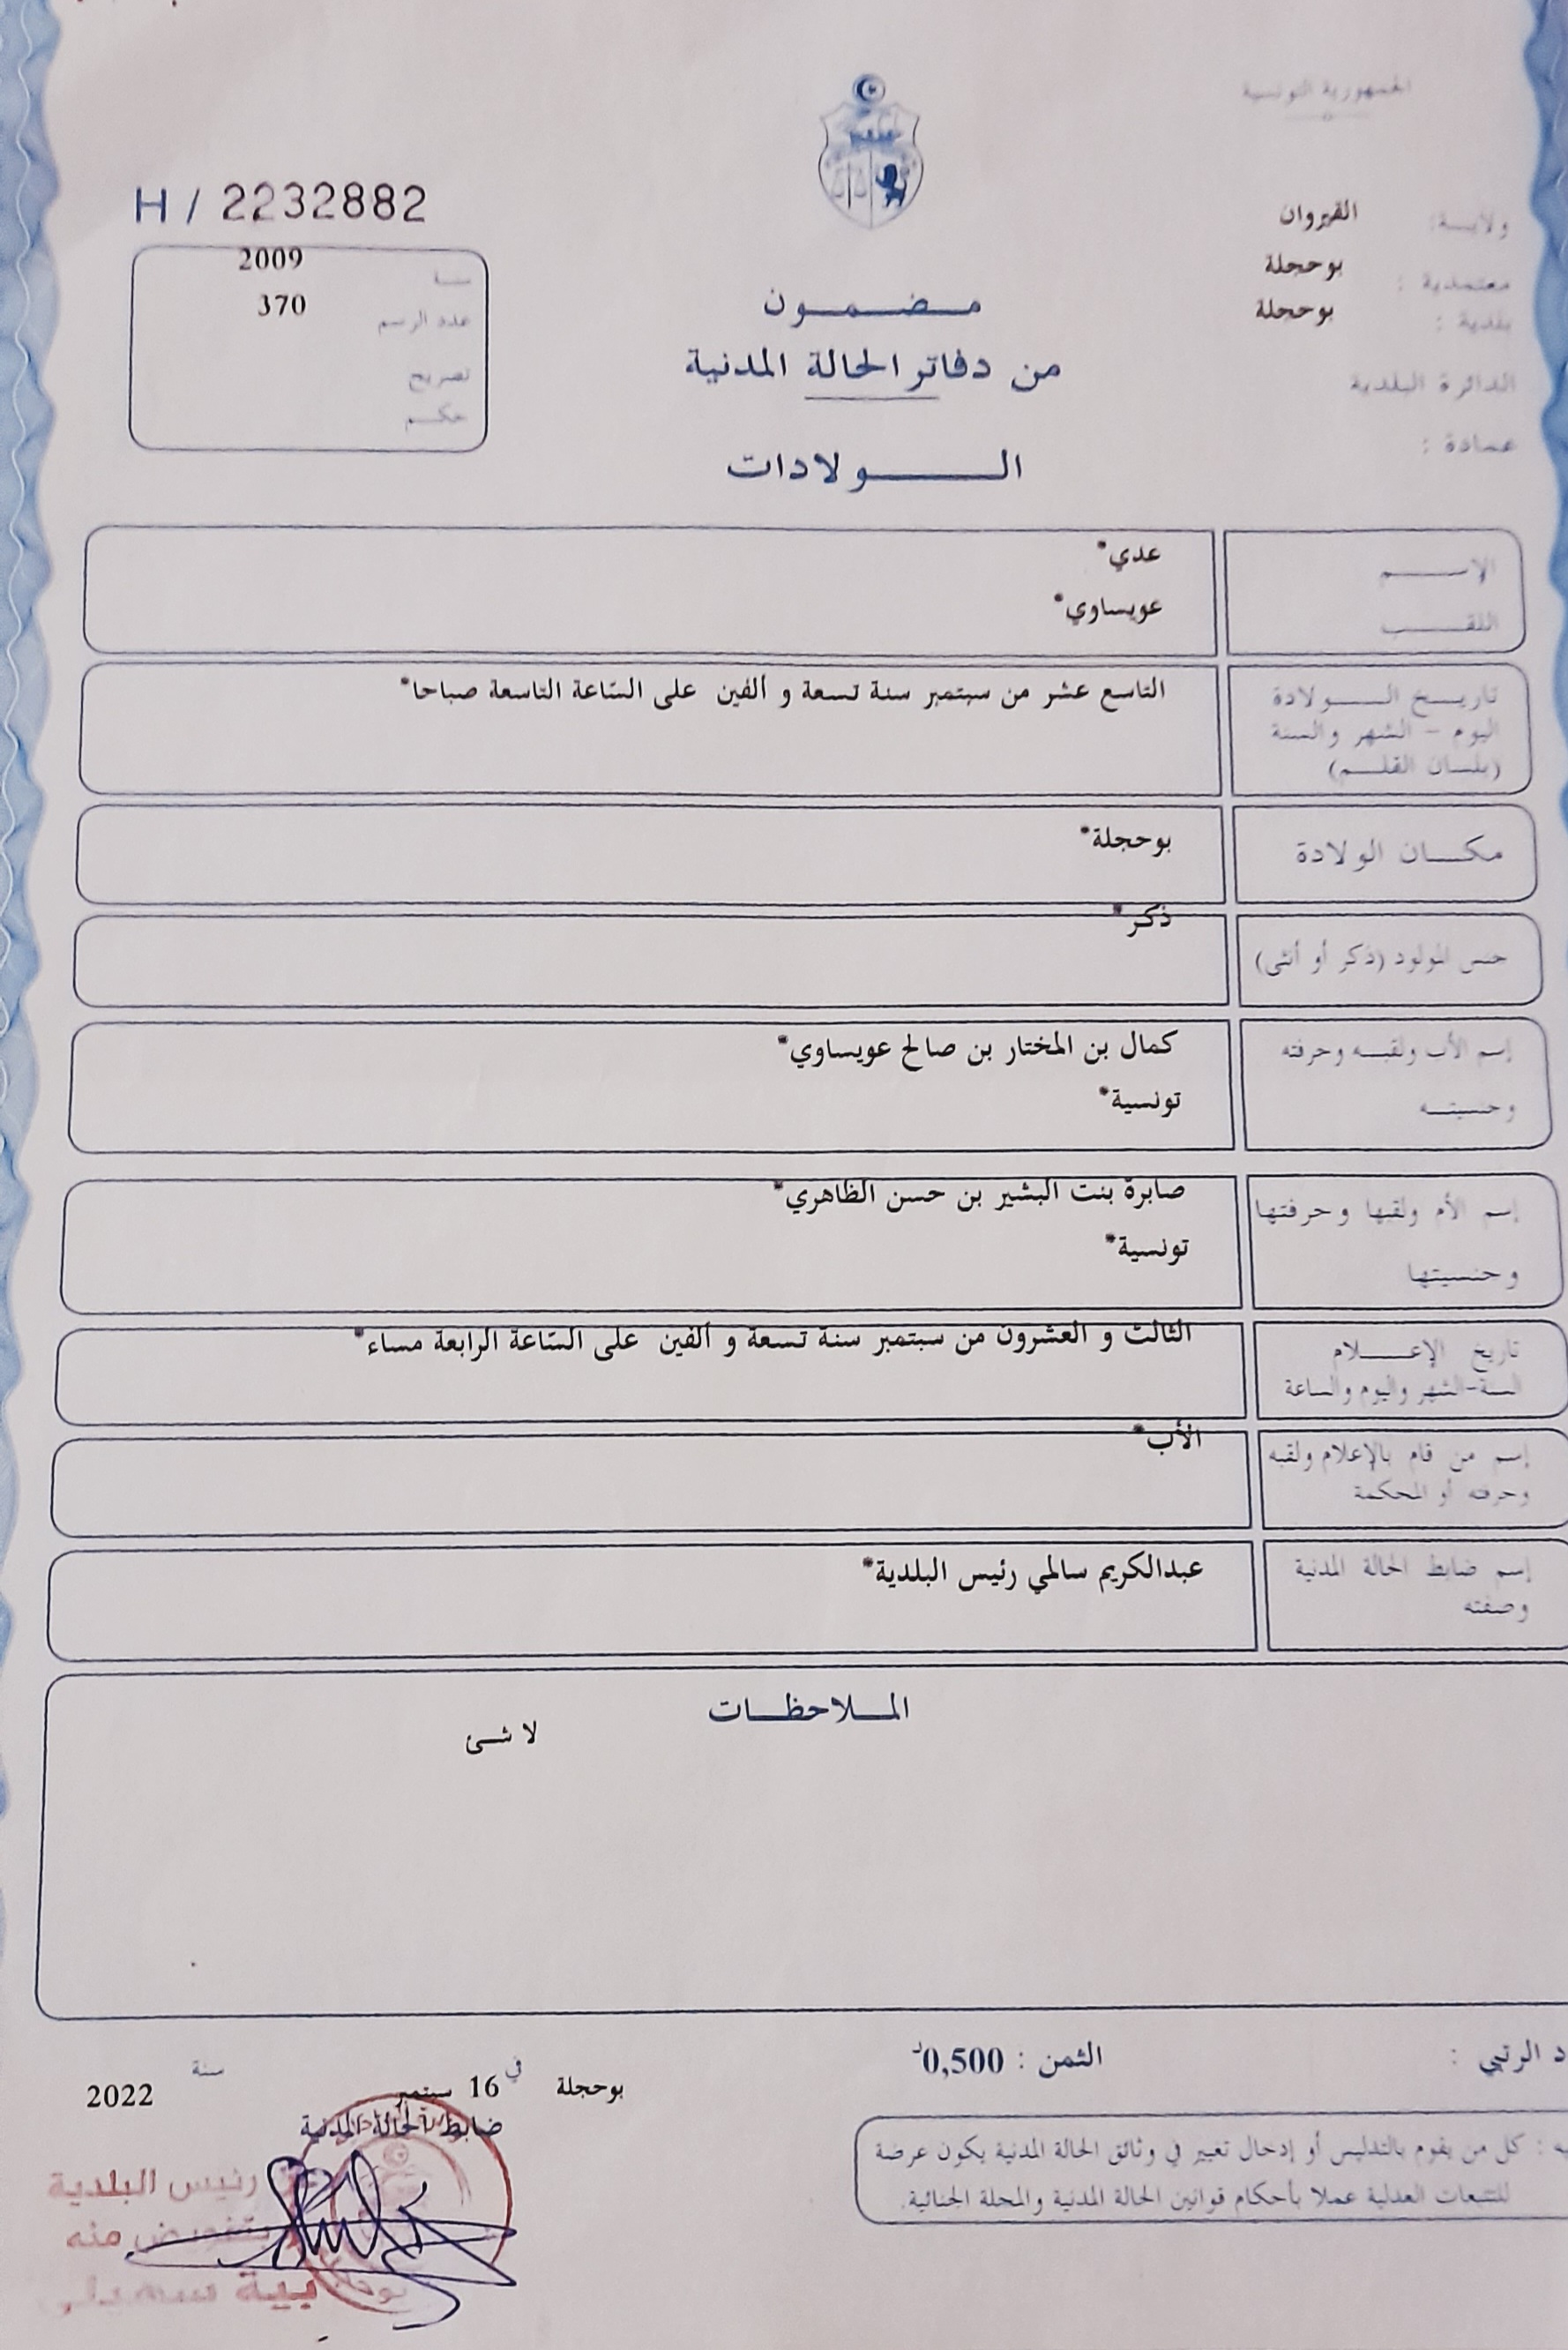 الجمهورية التونسية
H / 2232882
ولايـــة: القيروان
معتمدية : بوحجلة
بلدية : بوحجلة
الدائرة البلدية
عمادة :
2009
عدد الرسم 370
تصريح
حكـم
مـضـمـون
من دفاتر الحالة المدنية
الـولادات
الإســـم عدي*
اللقـــب عويساوي*
تاريـخ الـــولادة التاسع عشر من سبتمبر سنة تسعة و ألفين على السّاعة التاسعة صباحا*
اليوم - الشهر والسنة
(بلسان القلـم)
مكـــان الولادة بوحجلة*
جنس المولود (ذكر أو أنثى) ذكر*
إسم الأب ولقبـه وحرفته كمال بن المختار بن صالح عويساوي*
وجنسيتـــه تونسية*
إسم الأم ولقبها وحرفتها صابرة بنت البشير بن حسن الظاهري*
وجنسيتها تونسية*
تاريخ الإعـــلام الثالث و العشرون من سبتمبر سنة تسعة و ألفين على السّاعة الرابعة مساء*
السنة-الشهر واليوم والساعة
إسم من قام بالإعلام ولقبه الأب*
وحرفته أو المحكمة
إسم ضابط الحالة المدنية عبدالكريم سالمي رئيس البلدية*
وصفته
المـلاحظـات
لا شئ
د الرتبي :
الثمن : 0,500د
بوحجلة في 16 سبتمبر سنة 2022
ضابط الحالة المدنية
رئيس البلدية
بتفويض منه
بية
يه : كل من يقوم بالتدليس أو إدخال تغيير في وثائق الحالة المدنية يكون عرضة
للتتبعات العدلية عملا بأحكام قوانين الحالة المدنية والمجلة الجنائية.